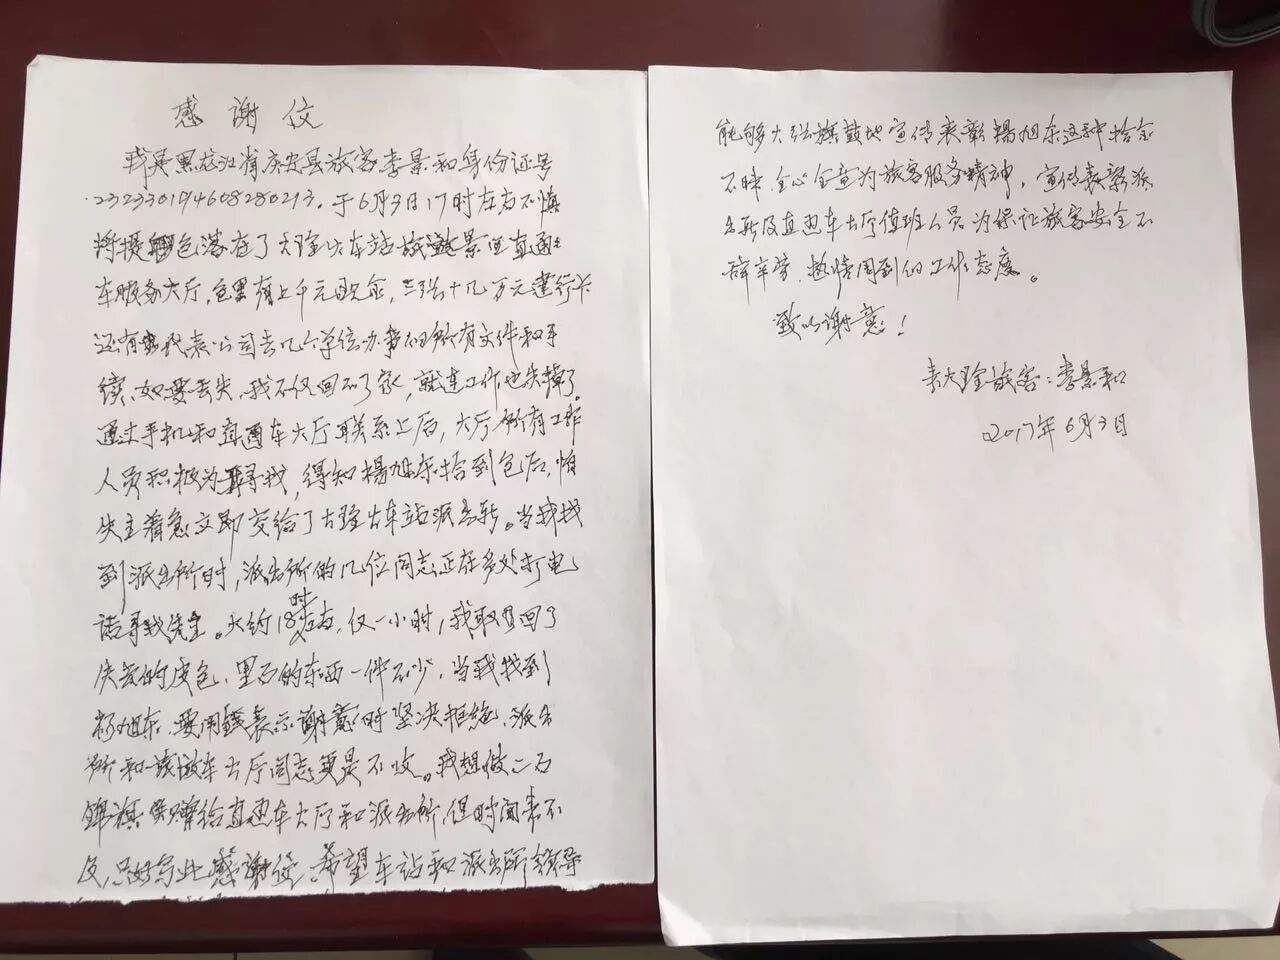 感谢信
我是黑龙江省庆安县旅客李景和身份证号
232330194608280213。于6月3日17时左右不慎
将提包落在了大理火车站旅游景区直通
车服务大厅,包里有上千元现金,三张十几万元建行卡
还有代表公司去几个单位办事的所有文件和手
续,如要丢失,我不仅回不了家,就连工作也失掉了。
通过手机和直通车大厅联系上后,大厅所有工作
人员积极为寻找,得知楊旭东拾到包后,怕
失主着急立即交给了大理火车站派出所。当我找
到派出所时,派出所的几位同志正在多处打电
话寻找失主。大约18时左右,仅一小时,我取回了
失去的皮包,里面的东西一件不少,当我找到
杨旭东,要用钱表示谢意时坚决拒绝,派出
所和直通车大厅同志更是不收。我想做二面
锦旗赠给直通车大厅和派出所,但时间来不
及,只好写此感谢信,希望车站和派出所领导
能够大张旗鼓地宣传表彰楊旭东这种拾金
不昧,全心全意为旅客服务精神,宣传表彰派
出所及直通车大厅值班人员为保证旅客安全不
辞辛劳,热情周到的工作态度。
致以谢意!
来大理旅客:李景和
2017年6月3日